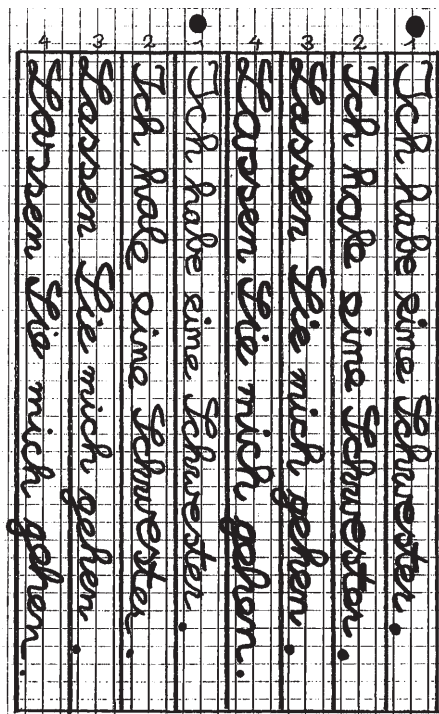 1 Ich habe eine Schwester.
2 Ich habe eine Schwester.
3 Lassen Sie mich gehen.
4 Lassen Sie mich gehen.
1 Ich habe eine Schwester.
2 Ich habe eine Schwester.
3 Lassen Sie mich gehen.
4 Lassen Sie mich gehen.